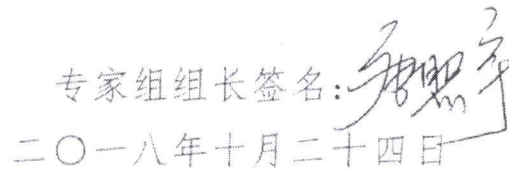 专家组组长签名:
二〇一八年十月二十四日